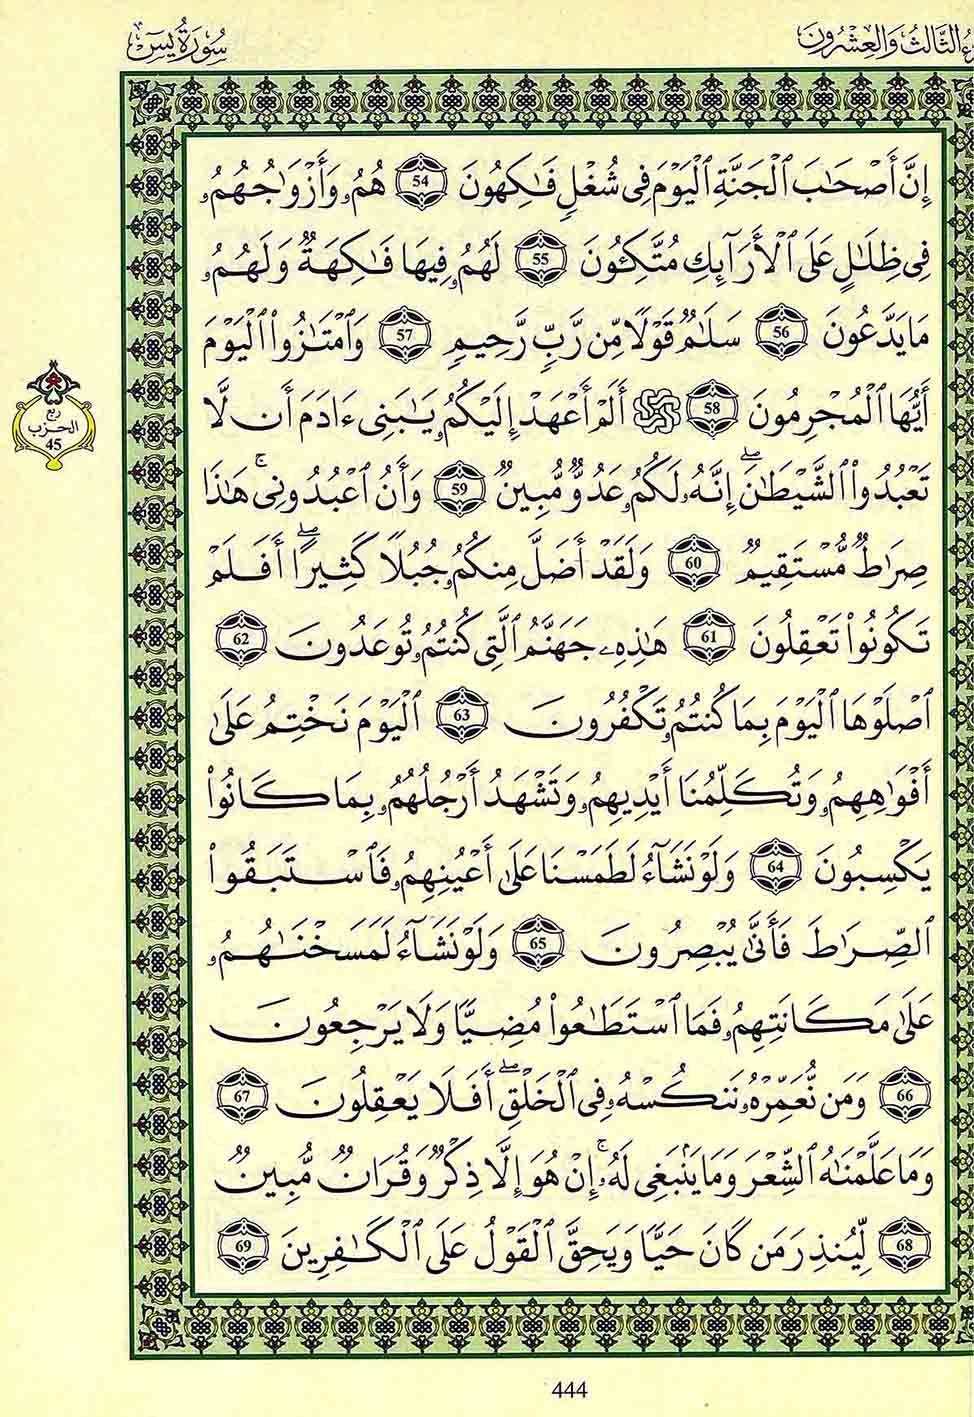 ءُ الثَّالِثُ وَالعِشْرُونَ
سُورَةُ يسٓ
إِنَّ أَصْحَٰبَ ٱلْجَنَّةِ ٱلْيَوْمَ فِى شُغْلٍ فَٰكِهُونَ 54 هُمُۥ وَأَزْوَٰجُهُمُۥ
فِى ظِلَٰلٍ عَلَى ٱلْأَرَآئِكِ مُتَّكِـُٔونَ 55 لَهُمُۥ فِيهَا فَٰكِهَةٌ وَلَهُمُۥ
مَا يَدَّعُونَ 56 سَلَٰمٌ قَوْلًا مِّن رَّبٍّ رَّحِيمٍ 57 وَٱمْتَٰزُوا۟ ٱلْيَوْمَ
أَيُّهَا ٱلْمُجْرِمُونَ 58 أَلَمْ أَعْهَدْ إِلَيْكُمُۥ يَٰبَنِى ءَادَمَ أَن لَّا
تَعْبُدُوا۟ ٱلشَّيْطَٰنَۖ إِنَّهُۥ لَكُمُۥ عَدُوٌّ مُّبِينٌ 59 وَأَنُ ٱعْبُدُونِىۚ هَٰذَا
صِرَٰطٌ مُّسْتَقِيمٌ 60 وَلَقَدْ أَضَلَّ مِنكُمُۥ جُبُلًا كَثِيرًاۖ أَفَلَمْ
تَكُونُوا۟ تَعْقِلُونَ 61 هَٰذِهِۦ جَهَنَّمُ ٱلَّتِى كُنتُمُۥ تُوعَدُونَ 62
ٱصْلَوْهَا ٱلْيَوْمَ بِمَا كُنتُمُۥ تَكْفُرُونَ 63 ٱلْيَوْمَ نَخْتِمُ عَلَىٰ
أَفْوَٰهِهِمُۥ وَتُكَلِّمُنَا أَيْدِيهِمُۥ وَتَشْهَدُ أَرْجُلُهُمُۥ بِمَا كَانُوا۟
يَكْسِبُونَ 64 وَلَوْ نَشَآءُ لَطَمَسْنَا عَلَىٰ أَعْيُنِهِمُۥ فَٱسْتَبَقُوا۟
ٱلصِّرَٰطَ فَأَنَّىٰ يُبْصِرُونَ 65 وَلَوْ نَشَآءُ لَمَسَخْنَٰهُمُۥ
عَلَىٰ مَكَانَتِهِمُۥ فَمَا ٱسْتَطَٰعُوا۟ مُضِيًّا وَلَا يَرْجِعُونَ
66 وَمَن نُّعَمِّرْهُۥ نَنكُسْهُۥ فِى ٱلْخَلْقِۖ أَفَلَا يَعْقِلُونَ 67
وَمَا عَلَّمْنَٰهُ ٱلشِّعْرَ وَمَا يَنۢبَغِى لَهُۥۚ إِنْ هُوَ إِلَّا ذِكْرٌ وَقُرَانٌ مُّبِينٌ
68 لِّيُنذِرَ مَن كَانَ حَيًّا وَيَحِقَّ ٱلْقَوْلُ عَلَى ٱلْكَٰفِرِينَ 69
ربع
الحزب
45
444